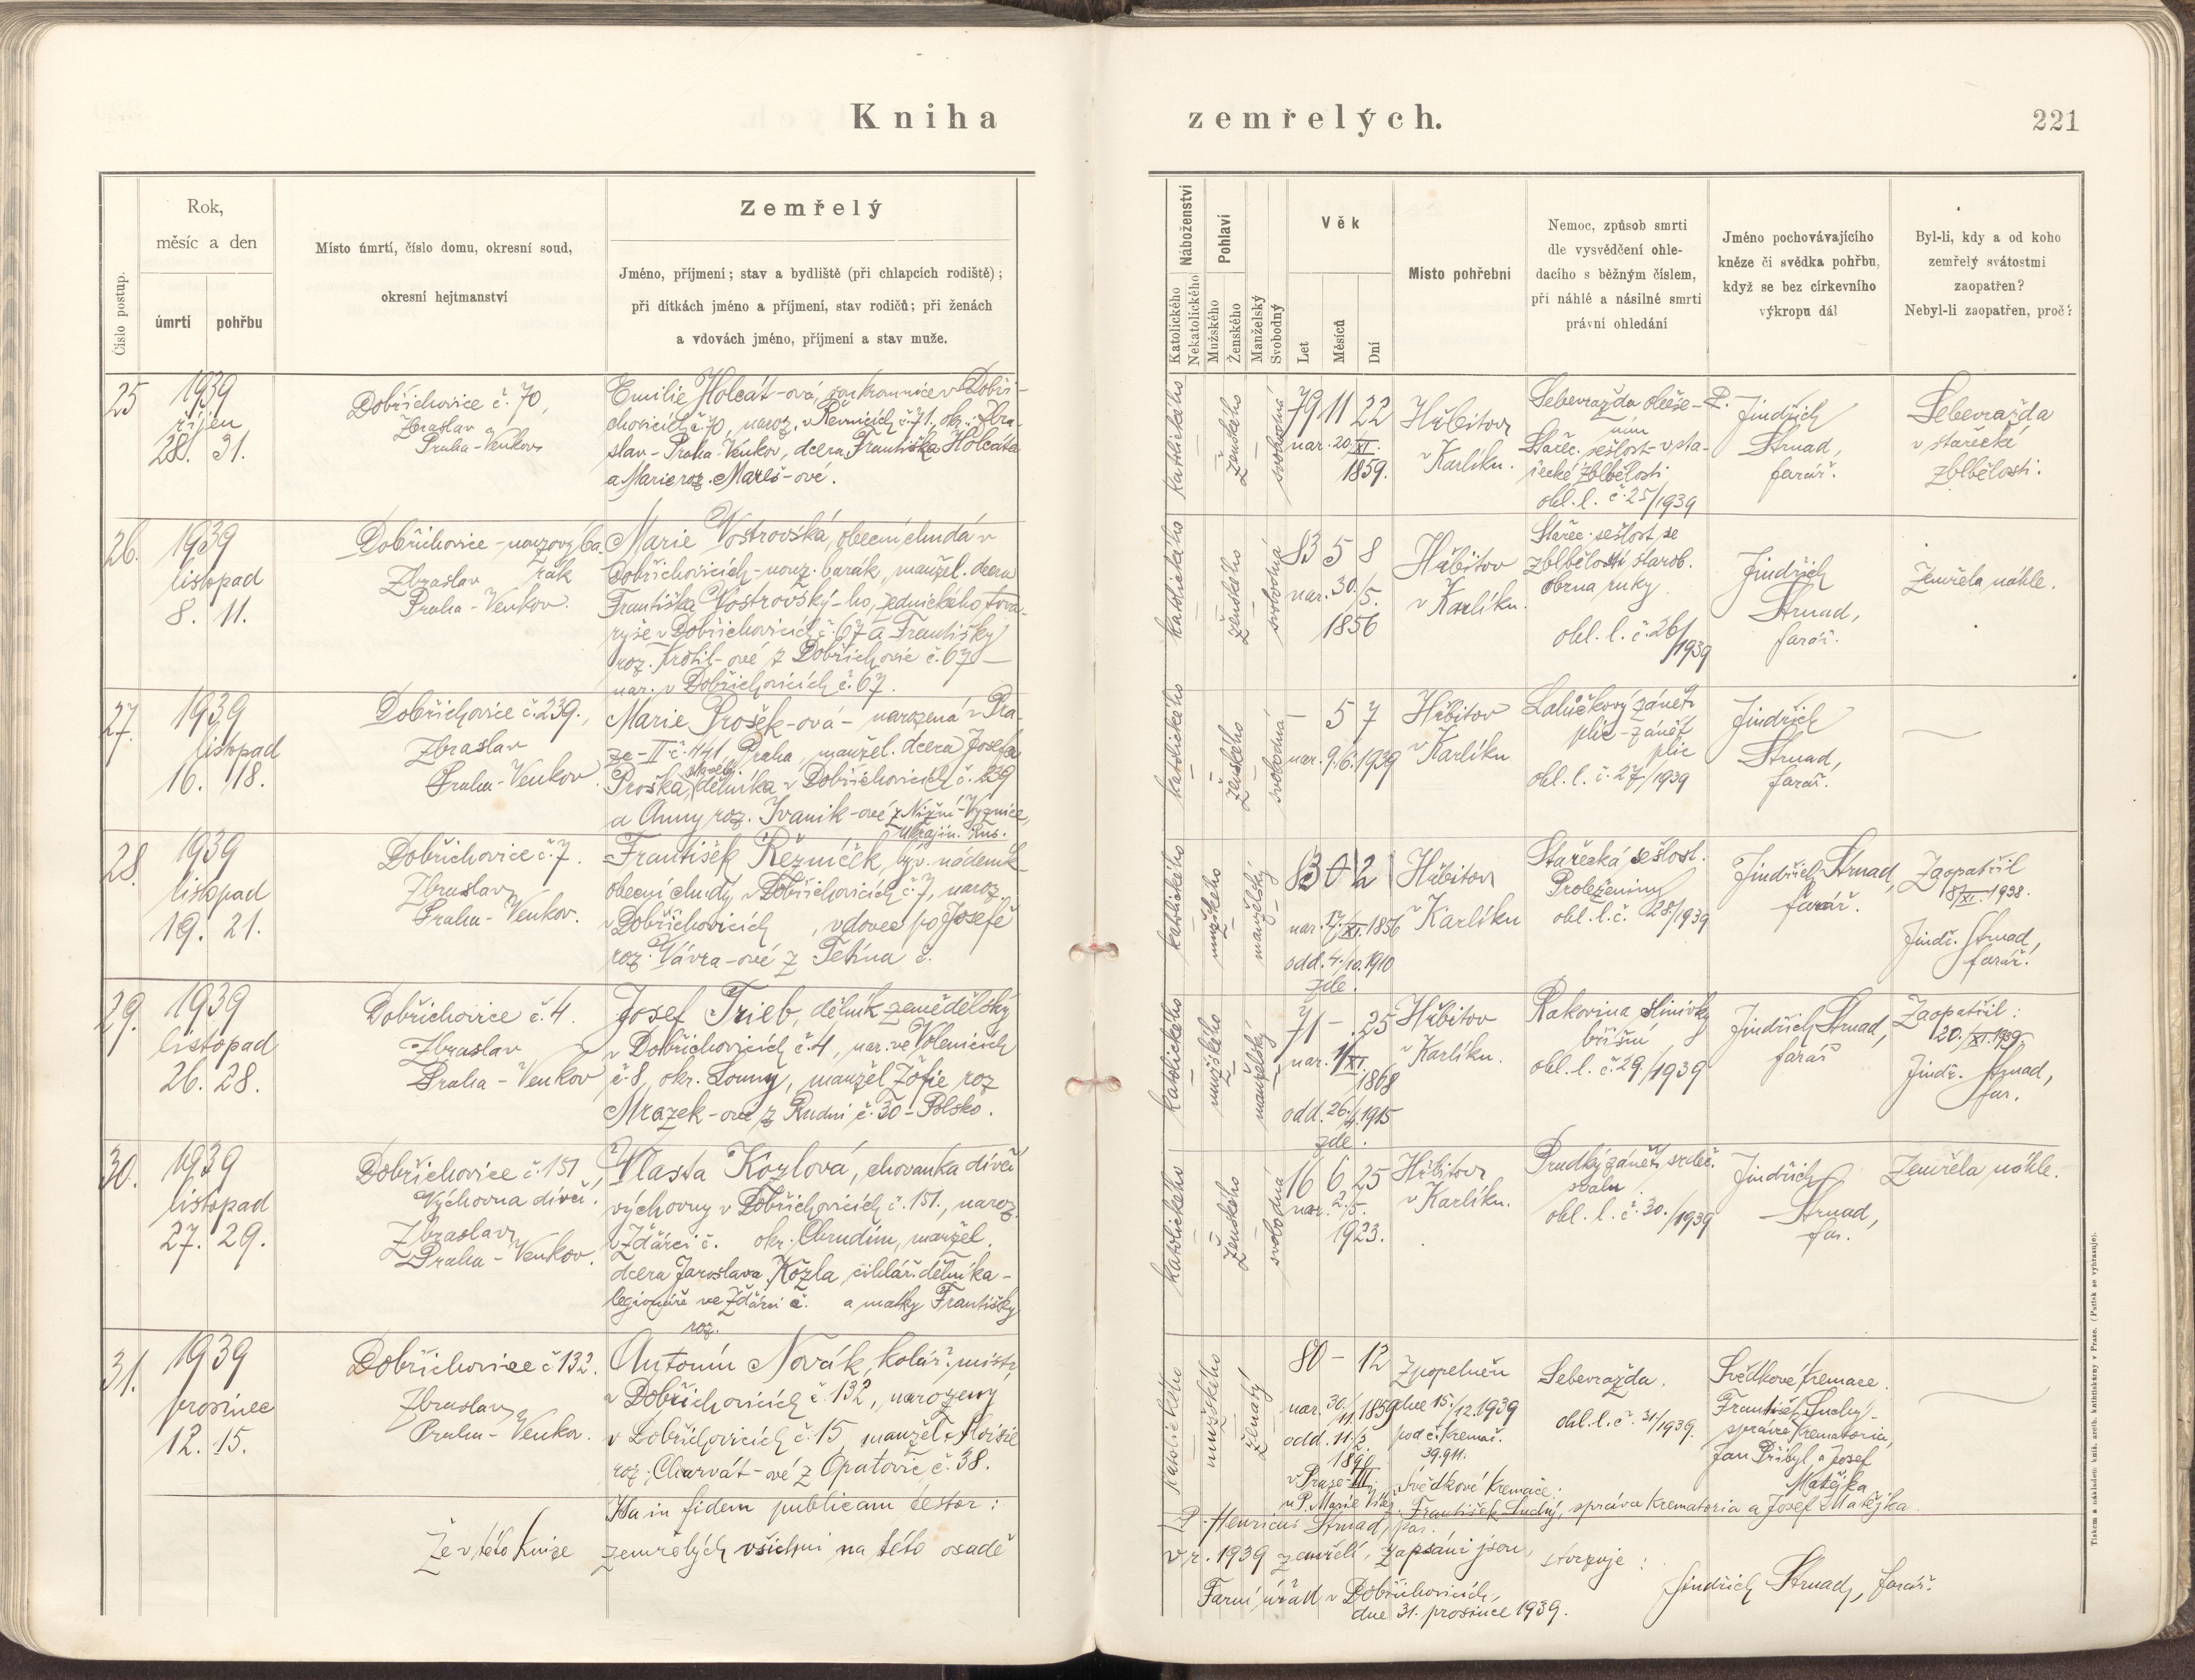 Kniha zemřelých.
221
Číslo postup.
Rok,
měsíc a den
úmrtí
pohřbu
Místo úmrtí, číslo domu, okresní soud,
okresní hejtmanství
Zemřelý
Jméno, příjmení; stav a bydliště (při chlapcích rodiště);
při dítkách jméno a příjmení, stav rodičů; při ženách
a vdovách jméno, příjmení a stav muže.
Náboženství
Katolického
Nekatolického
Pohlaví
Mužského
Ženského
Manželský
Svobodný
Věk
Let
Měsíců
Dní
Místo pohřební
Nemoc, způsob smrti
dle vysvědčení ohle-
dacího s běžným číslem,
při náhlé a násilné smrti
právní ohledání
Jméno pochovávajícího
kněze či svědka pohřbu,
když se bez církevního
výkropu dál
Byl-li, kdy a od koho
zemřelý svátostmi
zaopatřen?
Nebyl-li zaopatřen, proč?
25
1939
říjen
28. 31.
Dobřichovice č. 70,
Zbraslav
Praha-Venkov
Emilie Holcát-ová, soukromnice v Dobři-
chovicích č. 70, naroz. v Řevnicích č. 71. okr. Zbra-
slav - Praha-Venkov, dcera Františka Holcáta
a Marie roz. Mareš-ové.
katolického
ženského
svobodná
79 11 22
nar. 20./XI.
1859.
Hřbitov
v Karlíku.
Sebevražda oběše-
ním
Stařec. sešlost v sta-
řecké zblbělosti
ohl. l. č. 25/1939
P. Jindřich
Strnad,
farář.
Sebevražda
v stařecké
zblbělosti.
26.
1939
listopad
8. 11.
Dobřichovice - nouzový ba-
rák
Zbraslav
Praha-Venkov.
Marie Vostrovská, obecní chudá v
Dobřichovicích - nouz. barák, manžel. dcera
Františka Vostrovský-ho, zednického tova-
ryše v Dobřichovicích č. 67 a Františky
roz. Krotil-ové z Dobřichovic č. 67 —
nar. v Dobřichovicích č. 67.
katolického
ženského
svobodná
83 5 8
nar. 30./5.
1856
Hřbitov
v Karlíku.
Stařec. sešlost se
zblbělostí starob.
obrna ruky
ohl. l. č. 26/1939
Jindřich
Strnad,
farář.
Zemřela náhle.
27.
1939
listopad
16. 18.
Dobřichovice č. 239.,
Zbraslav
Praha-Venkov
Marie Prošek-ová - narozená v Pra-
ze-II č. 441, Praha, manžel. dcera Josefa
Proška, dělníka v Dobřichovicích č. 239
a Anny roz. Ivanik-ové z Nižní-Vyznice
Ukrajin. Rus.
katolického
ženského
svobodná
- 5 7
nar. 9./6. 1939
Hřbitov
v Karlíku
Lalůčkový zánět
plic - zánět
plic
ohl. l. č. 27/1939
Jindřich
Strnad,
farář.
28.
1939
listopad
19. 21.
Dobřichovice č. 7.
Zbraslav
Praha-Venkov.
František Řezníček, býv. nádeník
obecní chudý v Dobřichovicích č. 7, naroz.
v Dobřichovicích , vdovec po Josefě
roz. Vávra-ové z Tetína č.
katolického
mužského
manželský
83 0 2
nar. 17./XI. 1856
odd. 4./10. 1910
zde.
Hřbitov
v Karlíku
Stařecká sešlost.
Proleženiny
ohl. l. č. 28/1939
Jindřich Strnad,
farář.
Zaopatřil
18/XI. 1938.
Jindř. Strnad,
farář.
29.
1939
listopad
26. 28.
Dobřichovice č. 4.
Zbraslav
Praha-Venkov
Josef Trieb, dělník zemědělský
v Dobřichovicích č. 4, nar. ve Volenicích
č. 8, okr. Louny, manžel Žofie roz
Mrazek-ové z Rudni č. 30 - Polsko.
katolického
mužského
manželský
71 - 25
nar. 1/XI.
1868
odd. 26./4. 1915
zde.
Hřbitov
v Karlíku.
Rakovina slinivky
břišní
ohl. l. č. 29./1939
Jindřich Strnad,
farář
Zaopatřil:
20./XI. 1939.
Jindř. Strnad,
far.
30.
1939
listopad
27. 29.
Dobřichovice č. 151,
Výchovna dívčí.
Zbraslav
Praha-Venkov.
Vlasta Kozlová, chovanka dívčí
výchovny v Dobřichovicích č. 151., naroz.
v Ždárci č. okr. Chrudim, manžel.
dcera Jaroslava Kozla, cihlář. dělníka -
legionáře ve Ždárci č. a matky Františky
roz.
katolického
ženského
svobodná
16 6 25
nar. 2./5.
1923.
Hřbitov
v Karlíku.
Prudký zánět srdeč.
svalu
ohl. l. č. 30./1939
Jindřich
Strnad,
far.
Zemřela náhle.
31.
1939
prosinec
12. 15.
Dobřichovice č 132.
Zbraslav
Praha-Venkov.
Antonín Novák, kolář. mistr,
v Dobřichovicích č. 132, narozený
v Dobřichovicích č. 15, manžel Aloisie
roz. Charvát-ové z Opatovic č. 38.
katolického
mužského
ženatý
80 - 12
nar. 30./11. 1859
odd. 11./2.
1890
v Praze-III.
u P. Marie Vítěz.
Zpopelněn
dne 15./12. 1939
pod č. kremač.
39.911.
Sebevražda.
ohl. l. č. 31/1939.
Svědkové kremace.
František Suchý -
správce krematoria,
Jan Přibyl a Josef
Matějka
Svědkové kremace:
František Suchý, správce krematoria a Josef Matějka.
Ita in fidem publicam testor:
P. Henricus Strnad, par.
Že v této knize zemřelých všichni na této osadě
v r. 1939 zemřelí, zapsáni jsou, stvrzuje:
Farní úřad v Dobřichovicích,
dne 31. prosince 1939.
Jindřich Strnad, farář.
Tiskem a nákladem kníž. arcib. knihtiskárny v Praze. (Patisk se vyhrazuje).